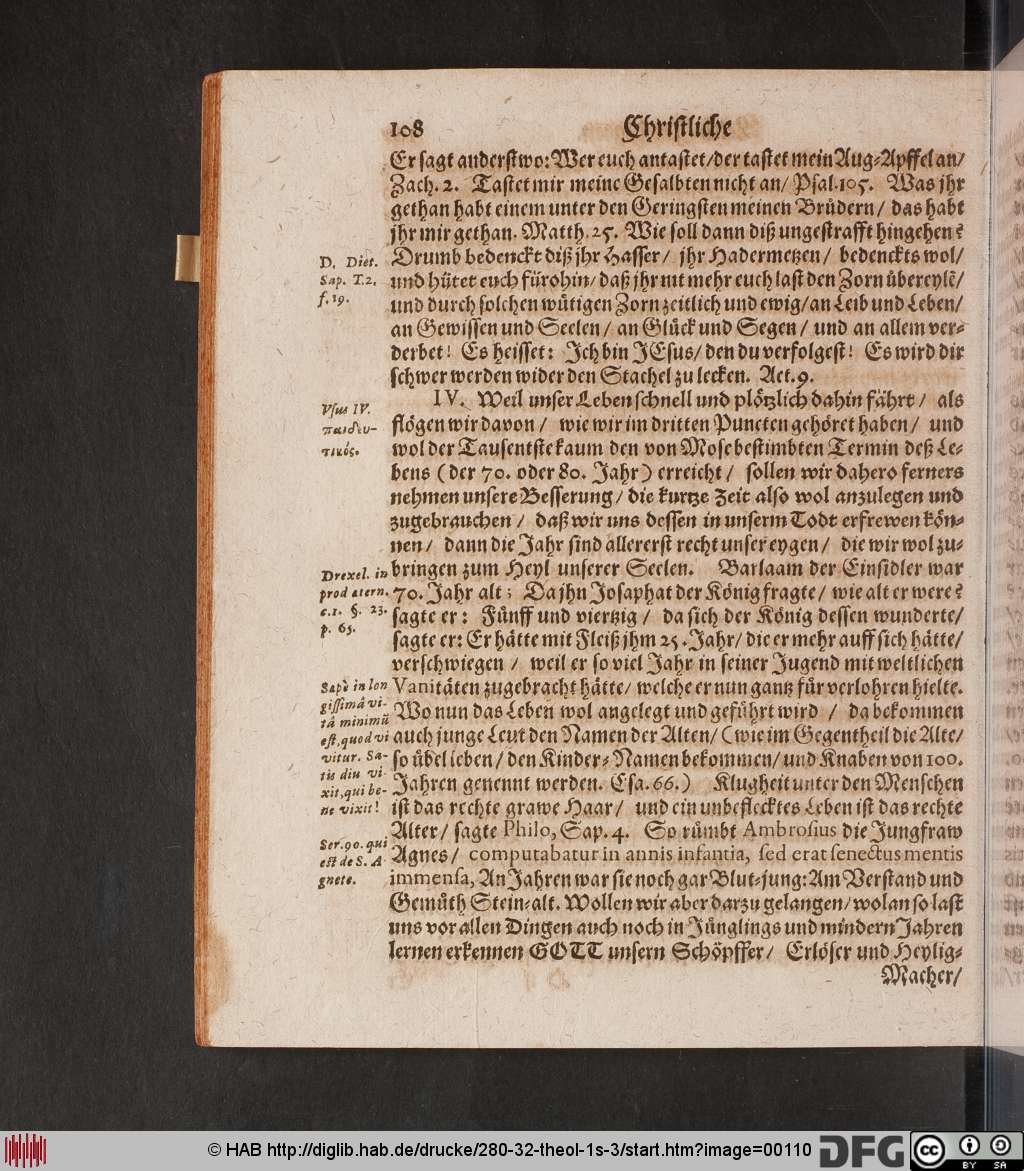 108 Christliche
Er sagt anderstwo: Wer euch antastet/ der tastet mein Aug-Apffel an/
Zach. 2. Tastet mir meine Gesalbten nicht an/ Psal. 105. Was jhr
gethan habt einem unter den Geringsten meinen Brůdern/ das habt
jhr mir gethan. Matth. 25. Wie soll dann diß ungestrafft hingehen?
D. Diet.
Sap. T. 2.
f. 19.
Drumb bedenckt diß jhr Hasser/ jhr Hadermetzen/ bedenckts wol/
und hůtet euch fürohin/ daß jhr nit mehr euch last den Zorn ůbereylẽ/
und durch solchen wůtigen Zorn zeitlich und ewig/ an Leib und Leben/
an Gewissen und Seelen/ an Glůck und Segen/ und an allem ver-
derbet! Es heisset: Jch bin JEsus/ den du verfolgest! Es wird dir
schwer werden wider den Stachel zu lecken. Act. 9.
Vsus IV.
παιδευ-
τικός.
IV. Weil unser Leben schnell und plötzlich dahin fährt/ als
flögen wir davon/ wie wir im dritten Puncten gehöret haben/ und
wol der Tausentste kaum den von Mose bestimbten Termin deß Le-
bens (der 70. oder 80. Jahr) erreicht/ sollen wir dahero ferners
nehmen unsere Besserung/ die kurtze Zeit also wol anzulegen und
zugebrauchen/ daß wir uns dessen in unserm Todt erfrewen kön-
nen/ dann die Jahr sind allererst recht unser eygen/ die wir wol zu-
Drexel. in
prod ætern.
c. 1. §. 23.
p. 65.
bringen zum Heyl unserer Seelen. Barlaam der Einsidler war
70. Jahr alt; Da jhn Josaphat der König fragte/ wie alt er were?
sagte er: Fůnff und viertzig/ da sich der König dessen wunderte/
sagte er: Er hätte mit Fleiß jhm 25. Jahr/ die er mehr auff sich hätte/
verschwiegen/ weil er so viel Jahr in seiner Jugend mit weltlichen
Sæpè in lon
gissimâ vi-
tâ minimũ
est, quod vi
vitur. Sa-
tis diu vi-
xit, qui be-
ne vixit!
Vanitäten zugebracht hätte/ welche er nun gantz fůr verlohren hielte.
Wo nun das Leben wol angelegt und gefůhrt wird/ da bekommen
auch junge Leut den Namen der Alten/ (wie im Gegentheil die Alte/
so ůbel leben/ den Kinder-Namen bekommen/ und Knaben von 100.
Jahren genennt werden. Esa. 66.) Klugheit unter den Menschen
ist das rechte grawe Haar/ und ein unbeflecktes Leben ist das rechte
Alter/ sagte Philo, Sap. 4. So růmbt Ambrosius die Jungfraw
Ser. 90. qui
est de S. A
gnete.
Agnes/ computabatur in annis infantia, sed erat senectus mentis
immensa, An Jahren war sie noch gar Blut-jung: Am Verstand und
Gemůth Stein-alt. Wollen wir aber darzu gelangen/ wolan so last
uns vor allen Dingen auch noch in Jůnglings und mindern Jahren
lernen erkennen GOTT unsern Schöpffer/ Erlöser und Heylig-
Macher/
© HAB http://diglib.hab.de/drucke/280-32-theol-1s-3/start.htm?image=00110 DFG cc BY SA